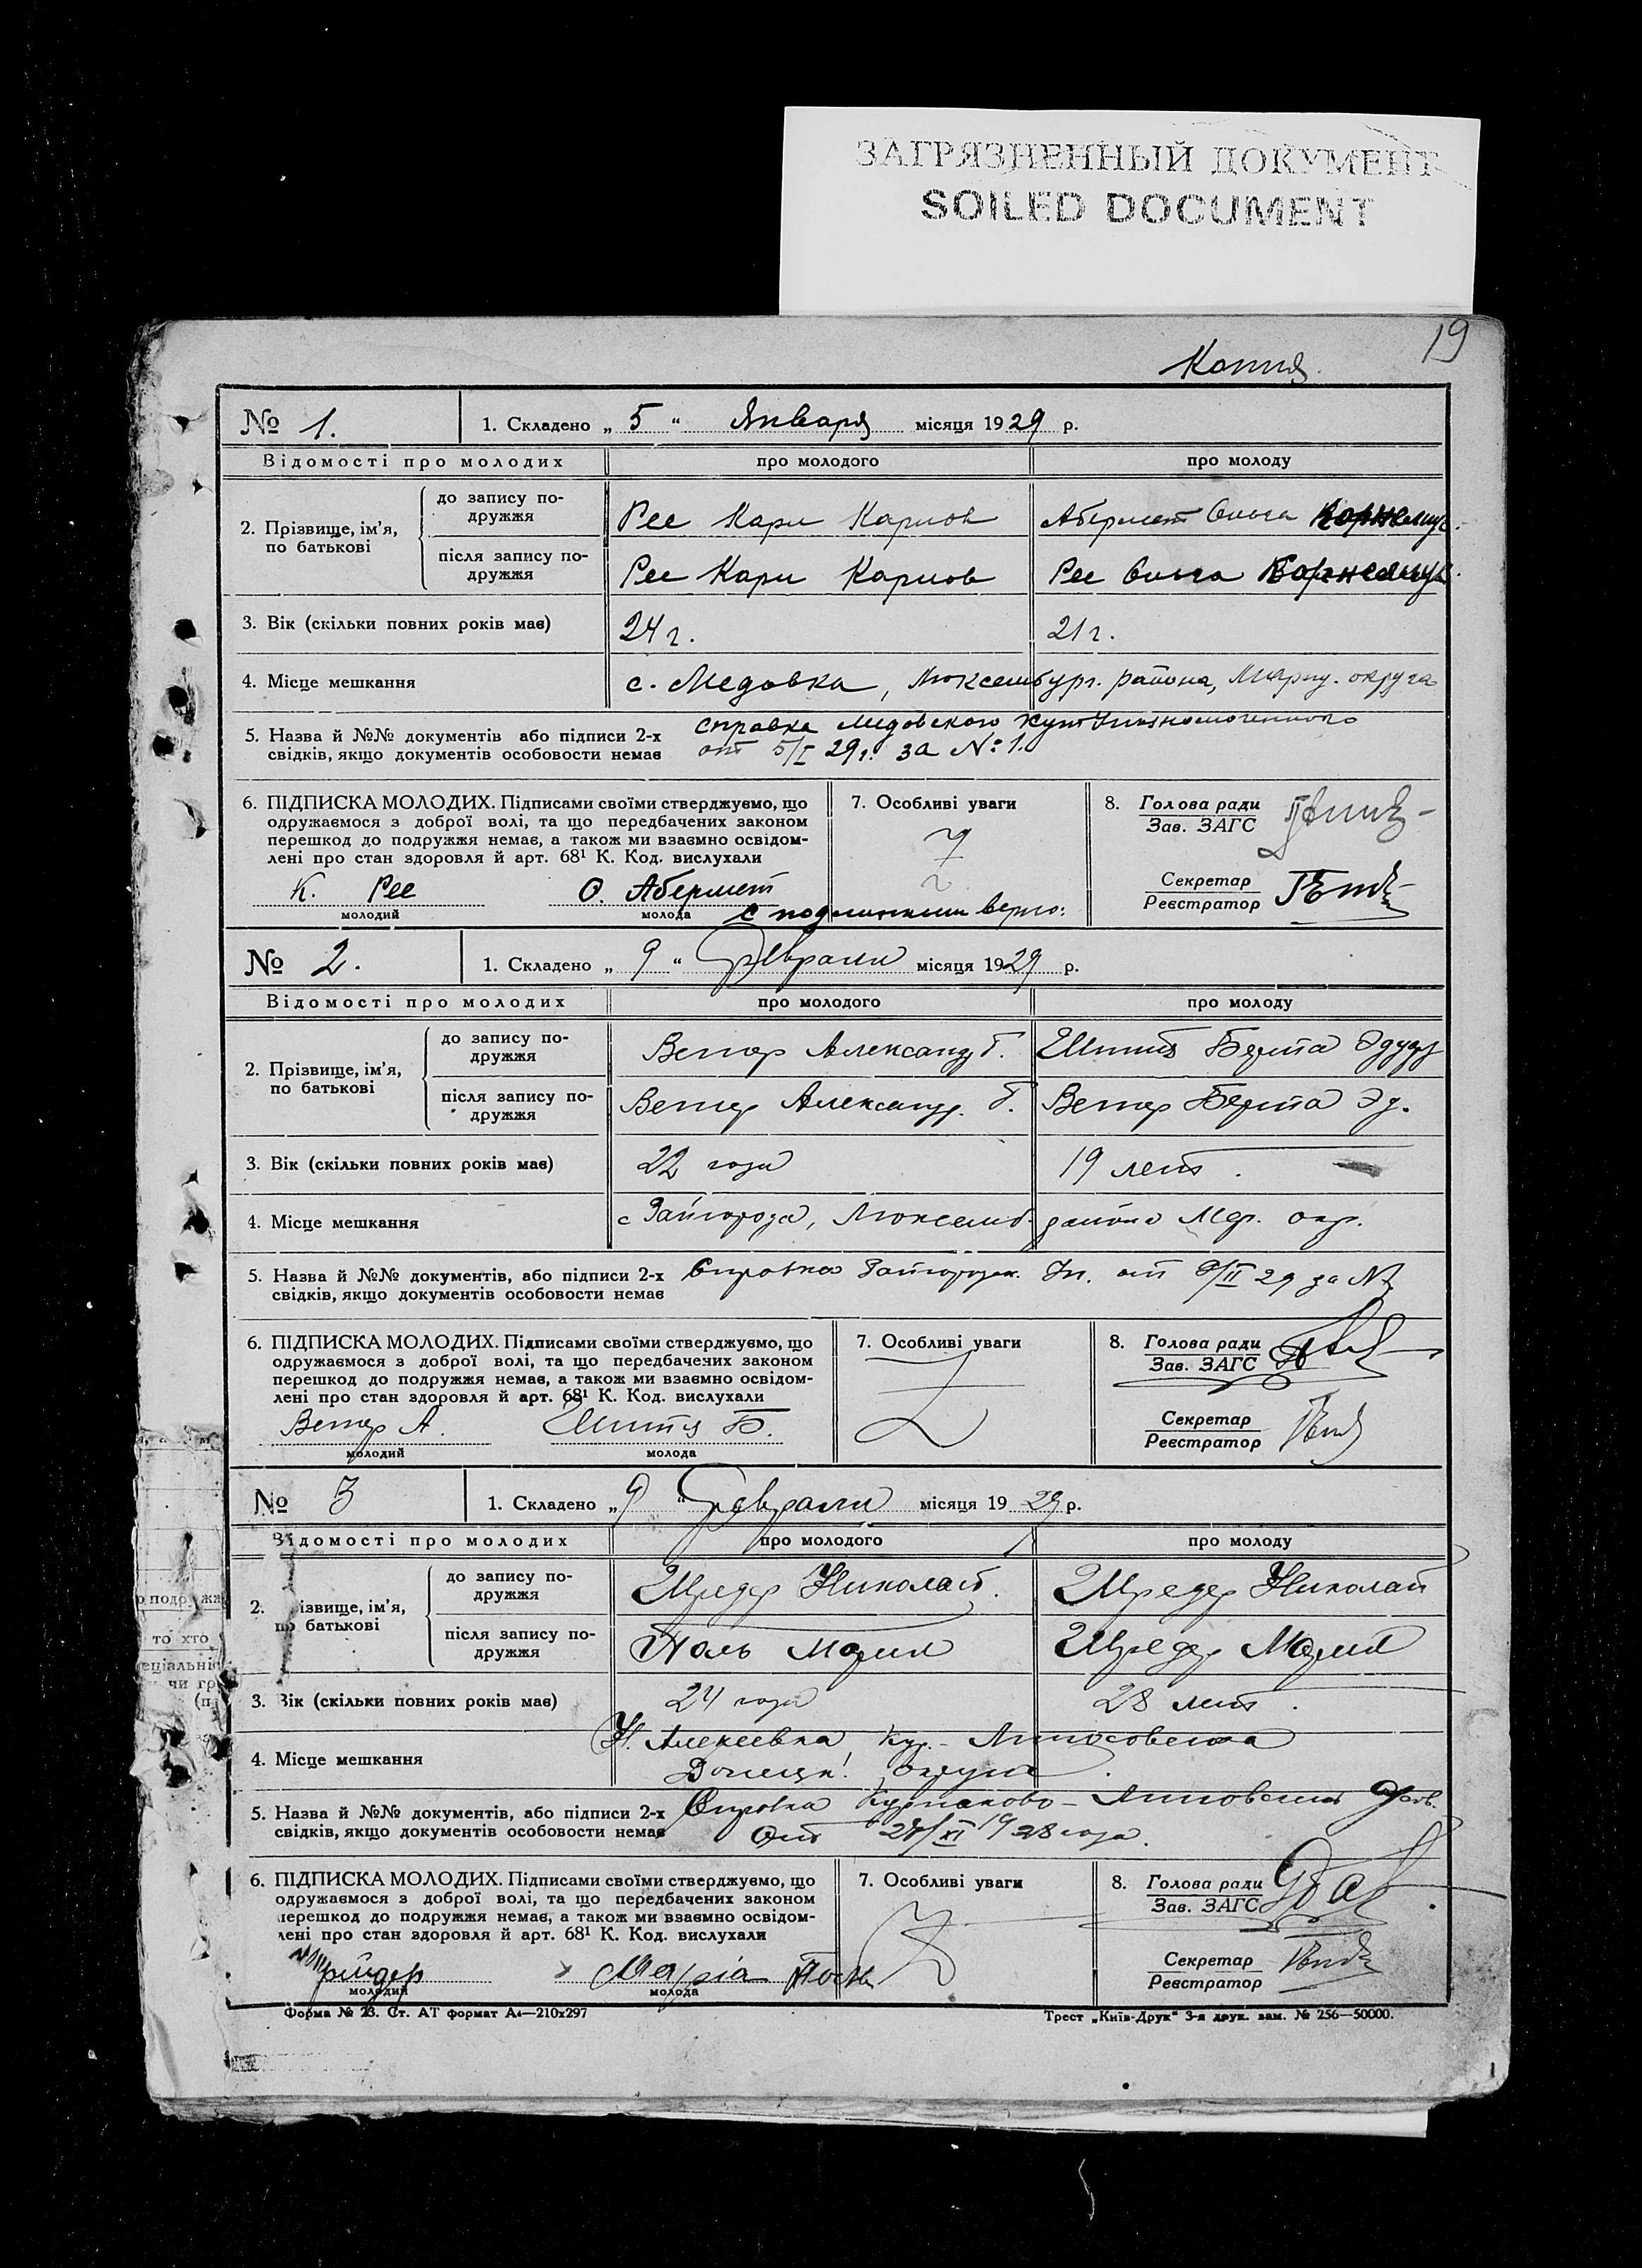 ЗАГРЯЗНЕННЫЙ ДОКУМЕНТ
SOILED DOCUMENT
19
Копия
№ 1. 1. Складено „ 5 “ Января місяця 1929 р.
Відомості про молодих про молодого про молоду
2. Прізвище, ім’я, по батькові
до запису подружжя Рее Карл Карлов Абермет Ольга
після запису подружжя Рее Карл Карлов Рее Ольга
3. Вік (скільки повних років має) 24 г. 21 г.
4. Місце мешкання с. Медовка, Люксембург. района, Мариу. округа
5. Назва й №№ документів або підписи 2-х справка Медовского
свідків, якщо документів особовости немає от 5/I 29 г. за №: 1.
6. ПІДПИСКА МОЛОДИХ. Підписами своїми стверджуємо, що 7. Особливі уваги 8. Голова ради
одружаємося з доброї волі, та що передбачених законом Зав. ЗАГС
перешкод до подружжя немає, а також ми взаємно освідом-
лені про стан здоровля й арт. 68¹ К. Код. вислухали Секретар
К. Рее О. Абермет Реєстратор
молодий молода с подлинным верно:
№ 2. 1. Складено „ 9 “ Февраля місяця 1929 р.
Відомості про молодих про молодого про молоду
2. Прізвище, ім’я, по батькові
до запису подружжя Александ Берта
після запису подружжя Александр. Берта Эд.
3. Вік (скільки повних років має) 22 года 19 лет.
4. Місце мешкання с Зайгороза, Люксемб. района Мар. окр.
5. Назва й №№ документів, або підписи 2-х Справка от 9/II 29 за №
свідків, якщо документів особовости немає
6. ПІДПИСКА МОЛОДИХ. Підписами своїми стверджуємо, що 7. Особливі уваги 8. Голова ради
одружаємося з доброї волі, та що передбачених законом Зав. ЗАГС
перешкод до подружжя немає, а також ми взаємно освідом-
лені про стан здоровля й арт. 68¹ К. Код. вислухали Секретар
А. Б. Реєстратор
молодий молода
№ 3 1. Складено „ 9 “ Февраля місяця 1929 р.
Відомості про молодих про молодого про молоду
2. ізвище, ім’я, по батькові
до запису подружжя Шредер Николай. Шредер Николай
після запису подружжя Поль Мария Шредер Мария
3. Вік (скільки повних років має) 24 года 28 лет.
4. Місце мешкання Н. Алексеевка Кур.-
Донецк. округа.
5. Назва й №№ документів, або підписи 2-х Справка
свідків, якщо документів особовости немає От 28/XI 1928 года.
6. ПІДПИСКА МОЛОДИХ. Підписами своїми стверджуємо, що 7. Особливі уваги 8. Голова ради
одружаємося з доброї волі, та що передбачених законом Зав. ЗАГС
перешкод до подружжя немає, а також ми взаємно освідом-
лені про стан здоровля й арт. 68¹ К. Код. вислухали Секретар
Марія Поль Реєстратор
молодий молода
Форма № 23. Ст. АТ формат А4—210х297 Трест „Київ-Друк“ 3-я друк. зам. № 256—50000.